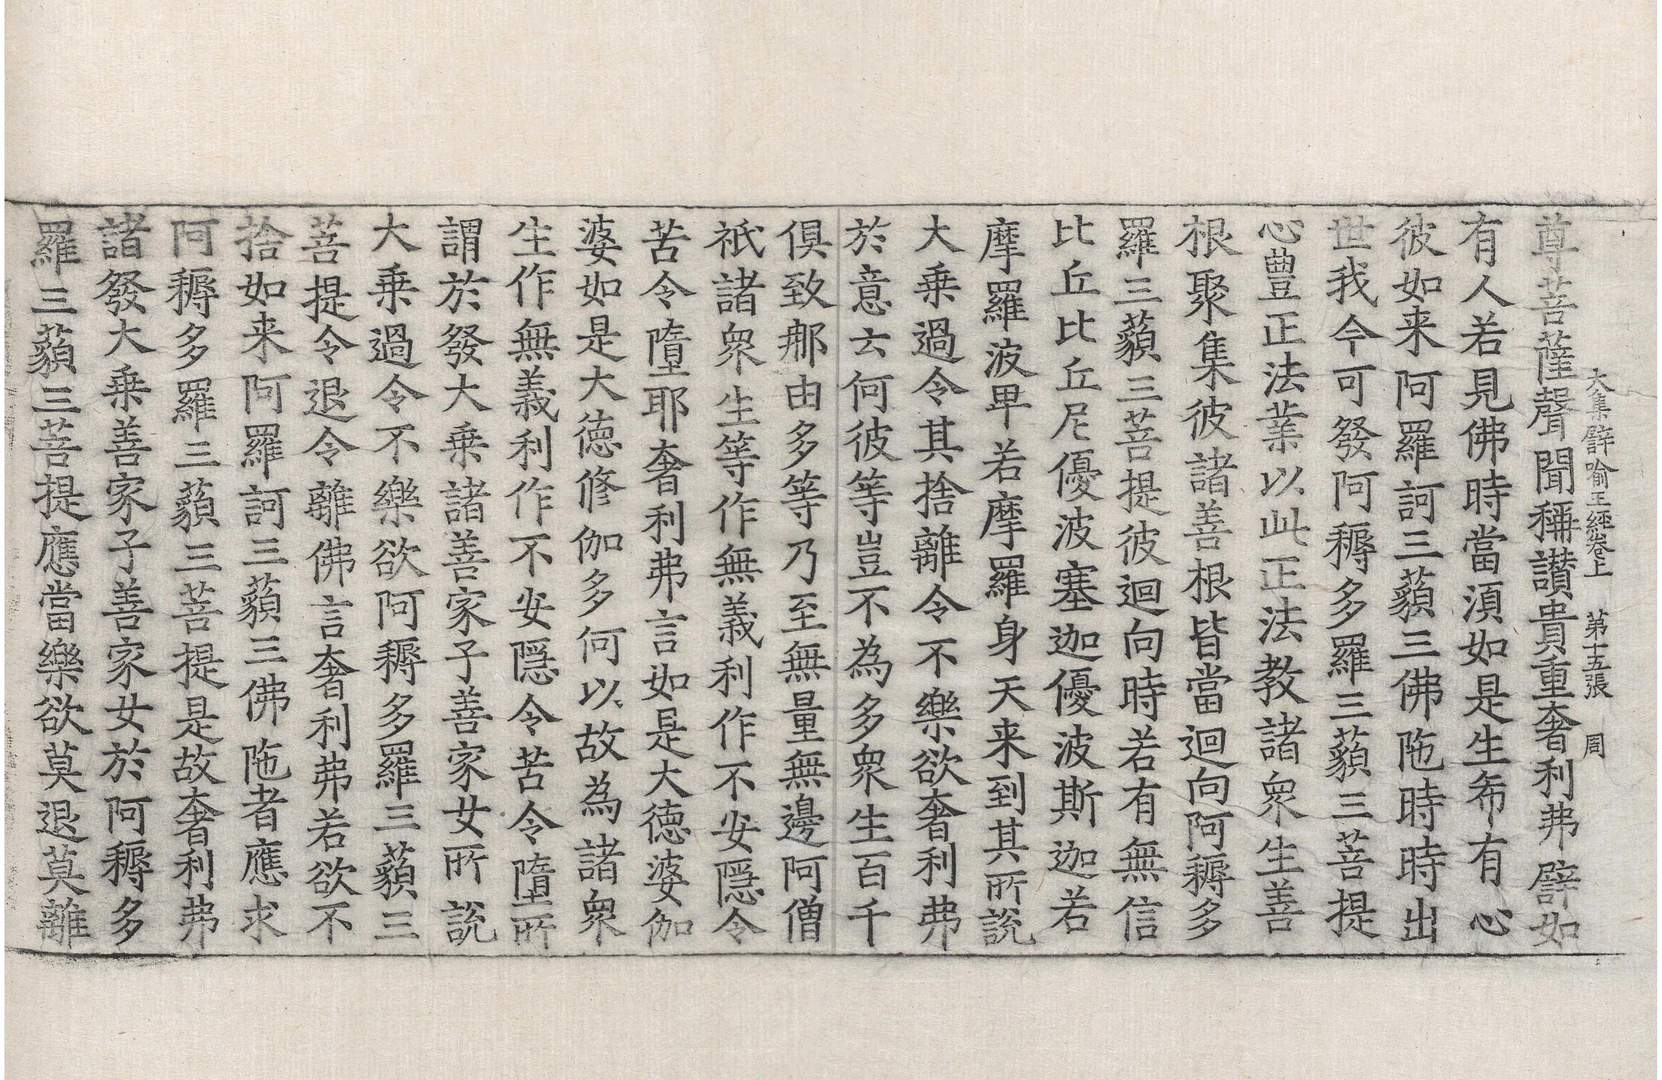 大集譬喻王經卷上　第十五張　周
尊菩薩聲聞稱讚貴重奢利弗譬如
有人若見佛時當須如是生希有心
彼如来阿羅訶三藐三佛陁時時出
世我今可發阿耨多羅三藐三菩提
心豐正法業以此正法教諸衆生善
根聚集彼諸善根皆當迴向阿耨多
羅三藐三菩提彼迴向時若有無信
比丘比丘尼優波塞迦優波斯迦若
摩羅波卑若摩羅身天来到其所說
大乗過令其捨離令不樂欲奢利弗
於意云何彼等豈不為多衆生百千
俱致那由多等乃至無量無邊阿僧
祇諸衆生等作無義利作不安隱令
苦令墮耶奢利弗言如是大德婆伽
婆如是大德修伽多何以故為諸衆
生作無義利作不安隱令苦令墮所
謂於發大乗諸善家子善家女所說
大乗過令不樂欲阿耨多羅三藐三
菩提令退令離佛言奢利弗若欲不
捨如来阿羅訶三藐三佛陁者應求
阿耨多羅三藐三菩提是故奢利弗
諸發大乗善家子善家女於阿耨多
羅三藐三菩提應當樂欲莫退莫離